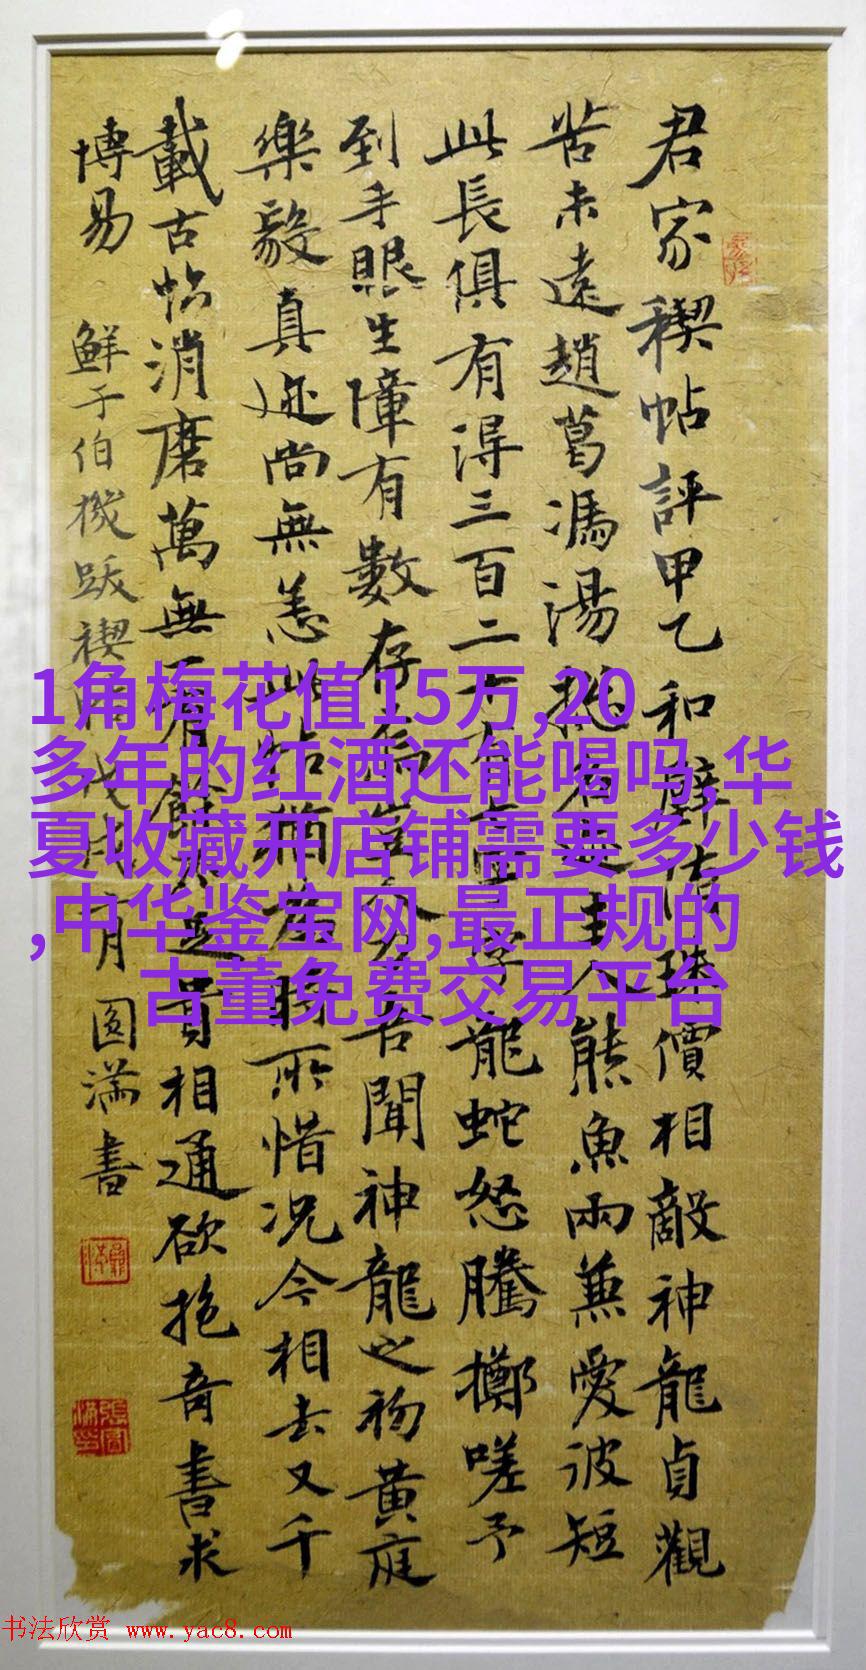 君家稧帖評甲乙和璧隋珠價相敵神龍貞觀
苦未遠趙葛馮湯揔名迹主人熊魚兩兼愛彼短
此長俱有得三百二十有五字龍蛇怒騰擲嗟予
到手眼生障有數存焉豈人力吾聞神龍之初黃庭
樂毅真迹尚無恙此帖猶為時所惜況今相去又千
載古帖消磨萬無有貴相通欲抱奇書求
博易 鮮于伯機跋禊帖戊戌月圓滿書
1角梅花值15万,20
多年的红酒还能喝吗,华
夏收藏开店铺需要多少钱
,中华鉴宝网,最正规的
古董免费交易平台
书法欣赏 www.yac8.com